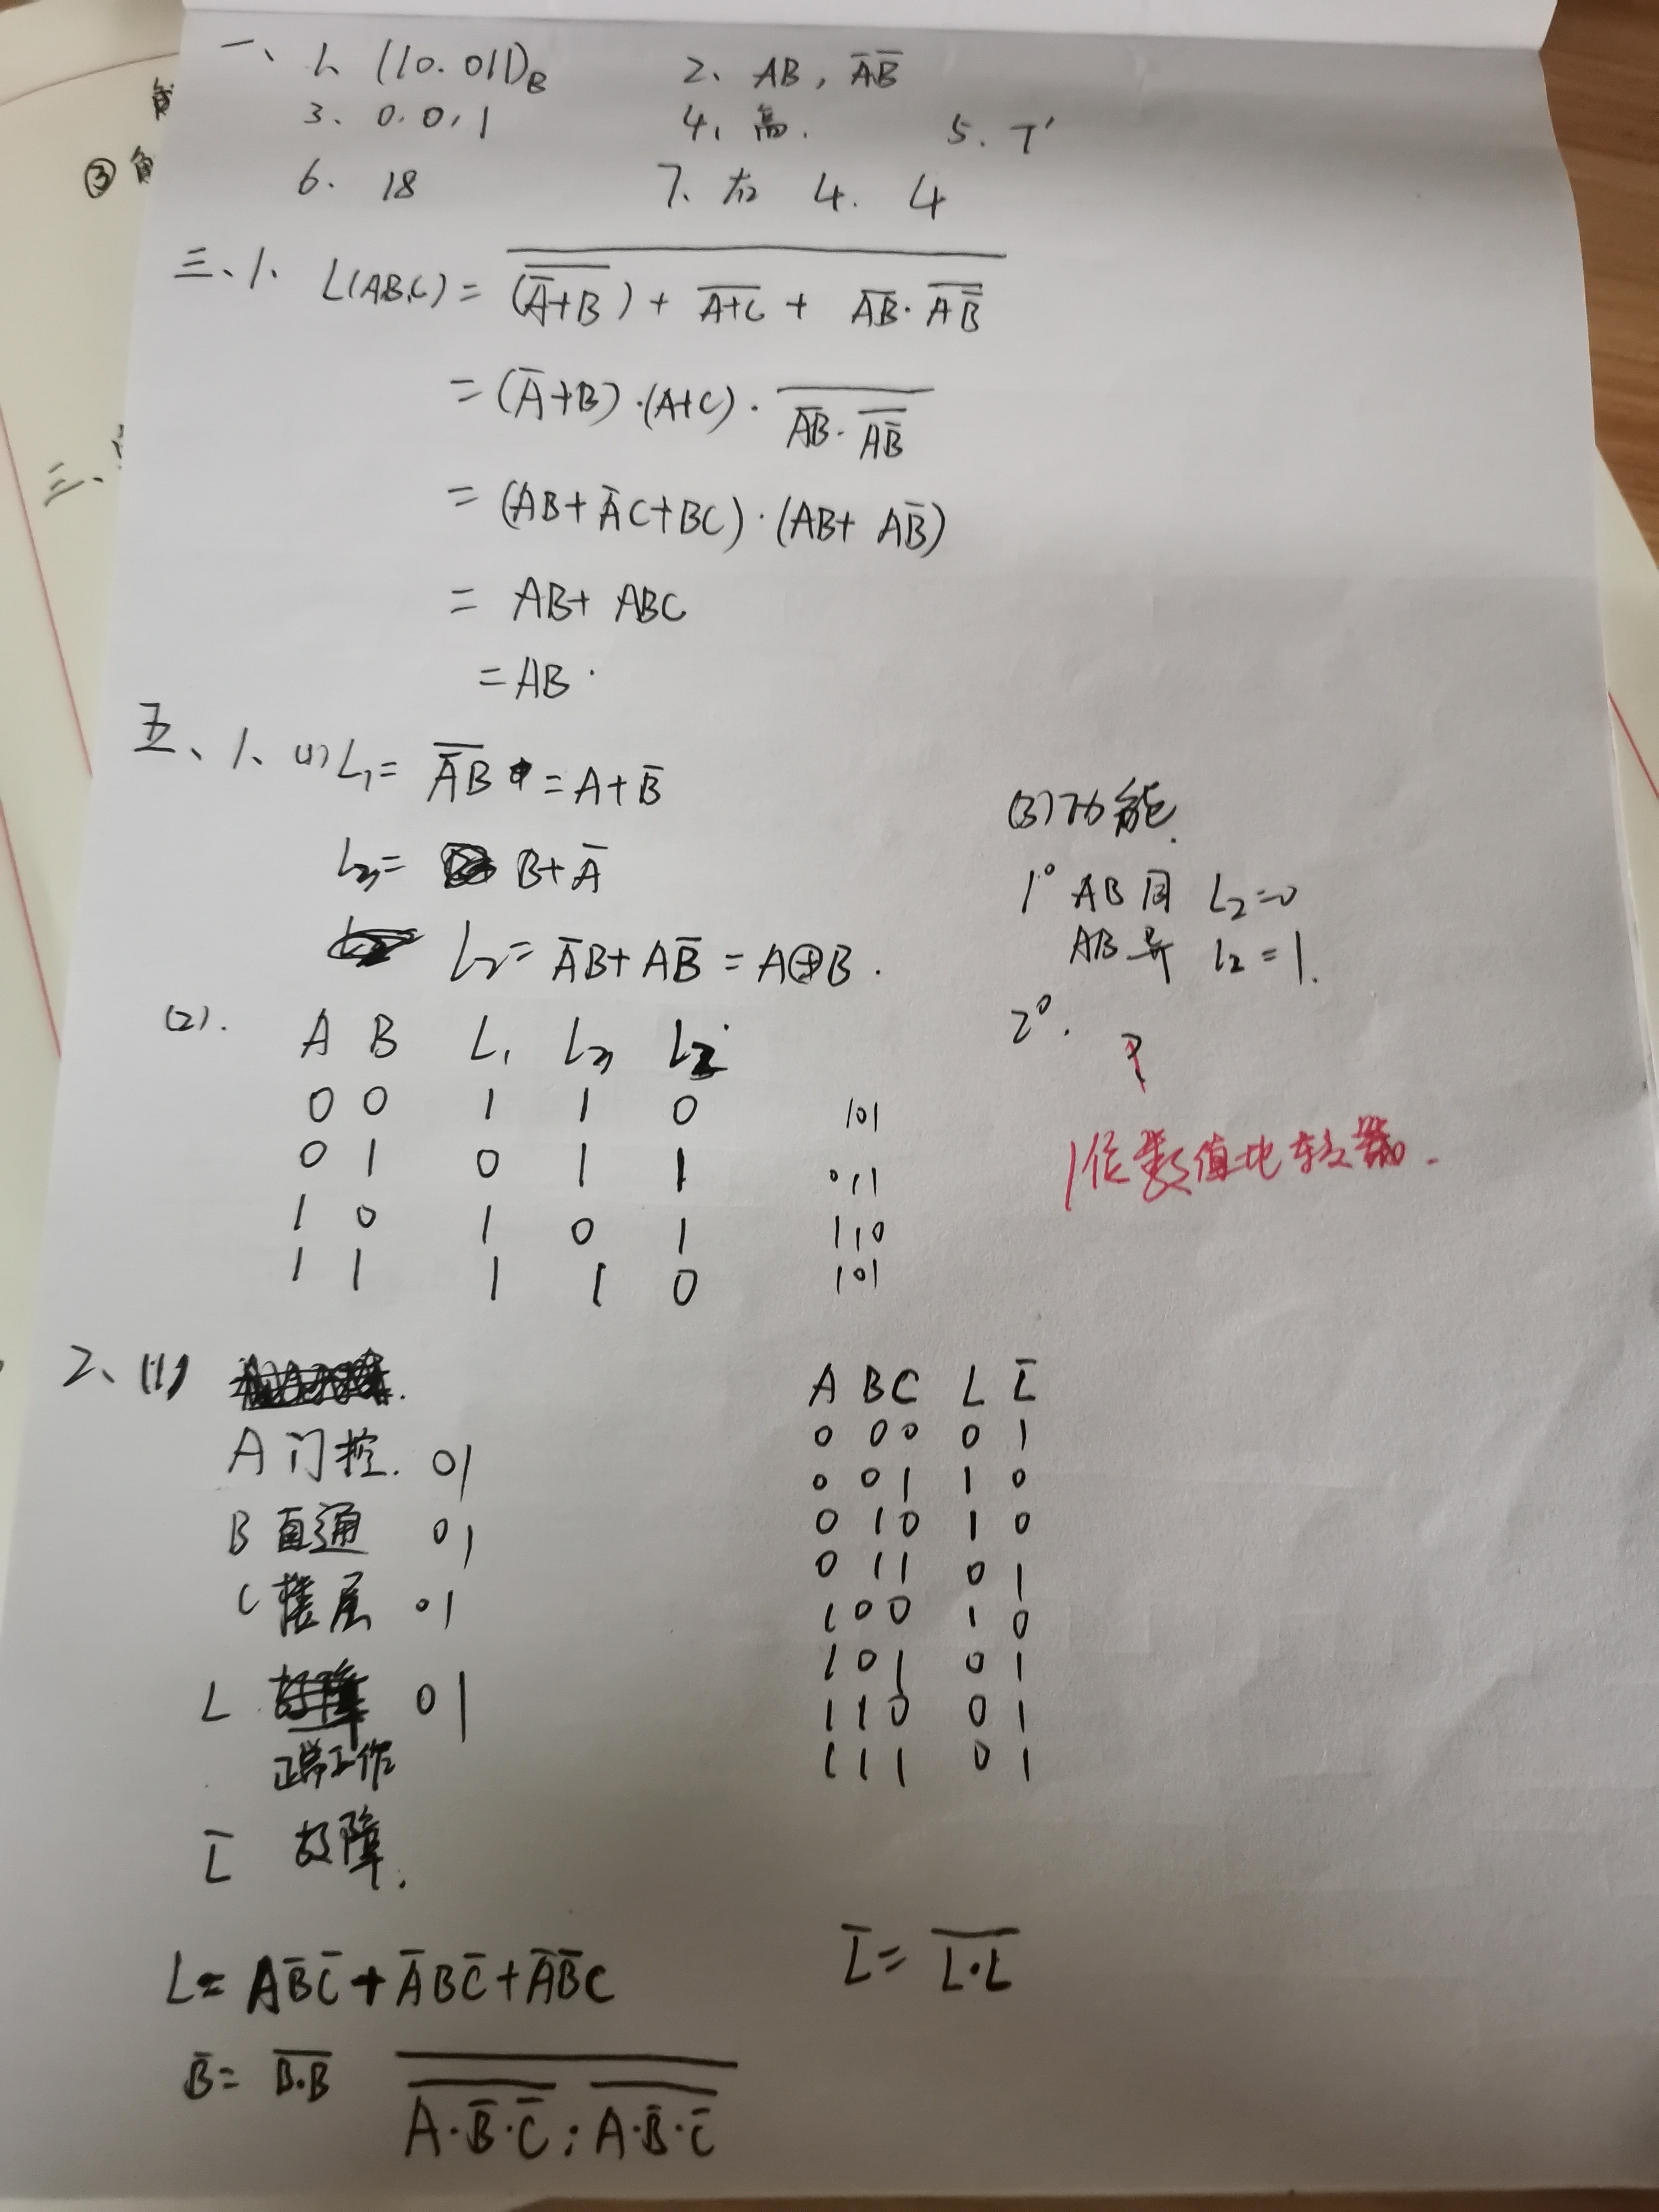 一、1、(10.011)B 2、AB, A̅B̅
3、0.0,1 4、高. 5. T'
6. 18 7、右 4. 4
三、1、L(AB,C) = \overline{\overline{(\overline{A}+B)} + \overline{A+C} + \overline{AB}·\overline{A\overline{B}}}
= (\overline{A}+B)·(A+C)·\overline{\overline{AB}·\overline{A\overline{B}}}
= (AB+\overline{A}C+BC)·(AB+A\overline{B})
= AB+ABC
= AB.
五、1、(1) L₁= \overline{\overline{A}B} = A+\overline{B}
L₃= B+\overline{A}
L₂= \overline{A}B+A\overline{B} = A⊕B.
(2). A B L₁ L₃ L₂
0 0 1 1 0 101
0 1 0 1 1 011
1 0 1 0 1 110
1 1 1 1 0 101
(3)功能
1° AB同 L₂=0
AB异 L₂=1.
2°. ?
1位数值比较器.
2、(1)
A 门控. 01
B 直通 01
C 楼层 01
L 01
正常工作
\overline{L} 故障.
A B C L \overline{L}
0 0 0 0 1
0 0 1 1 0
0 1 0 1 0
0 1 1 0 1
1 0 0 1 0
1 0 1 0 1
1 1 0 0 1
1 1 1 0 1
L= A\overline{B}\overline{C}+\overline{A}B\overline{C}+\overline{A}\overline{B}C
\overline{L}= \overline{L·L}
\overline{B}= \overline{B·B} \overline{\overline{A·\overline{B}·\overline{C}}·\overline{A·\overline{B}·\overline{C}}}
三、
③